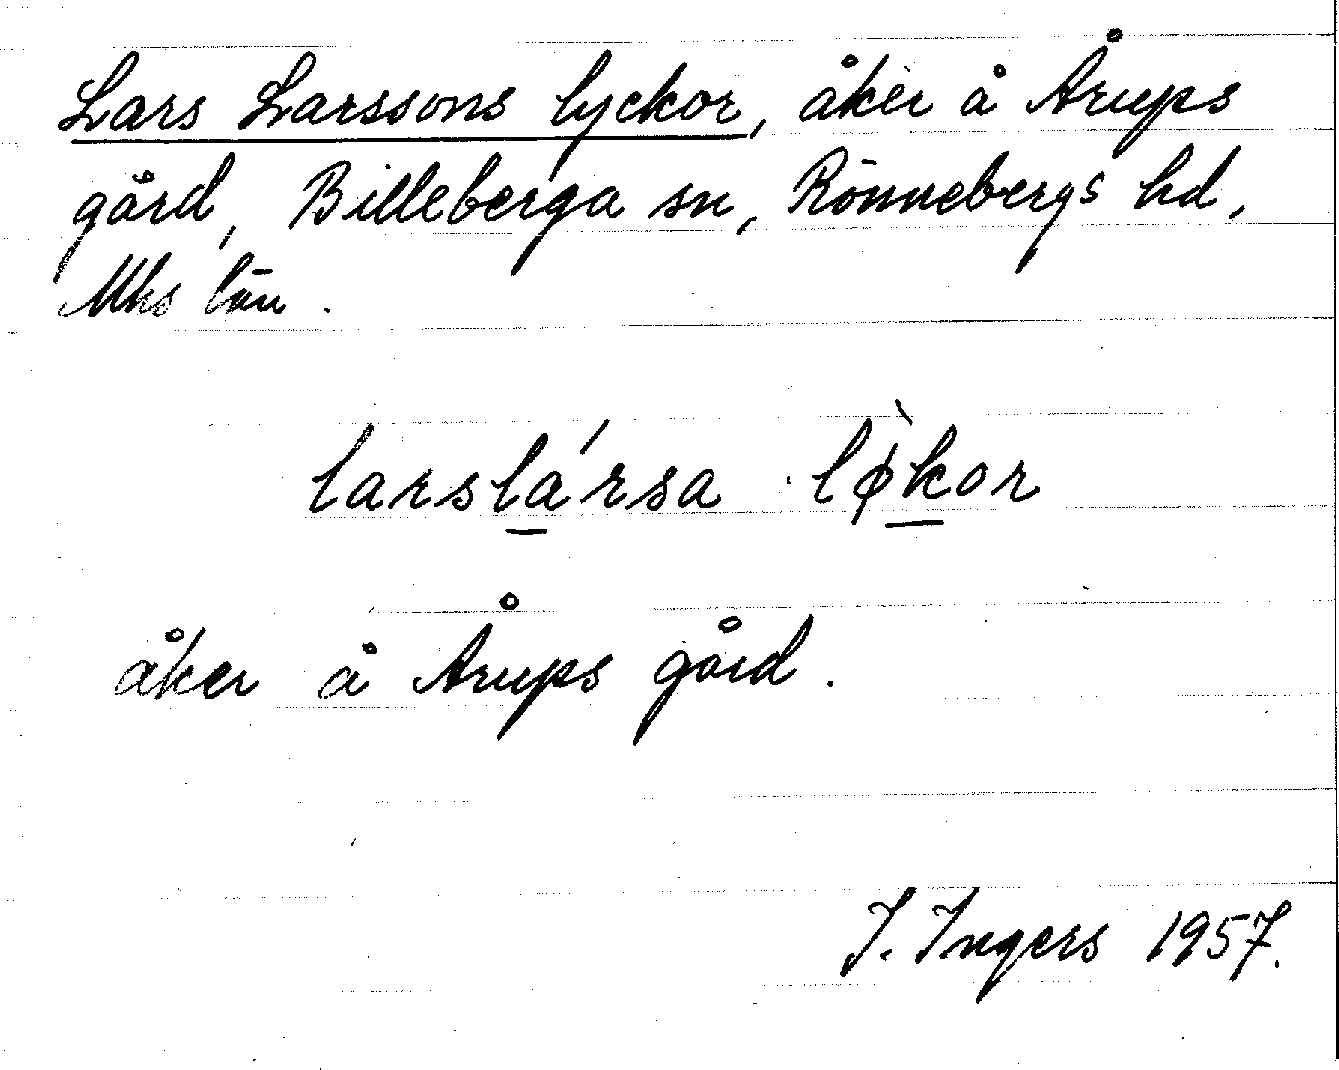 Lars Larssons lyckor, åker å Årups
gård, Billeberga sn, Rönnebergs hd,
Mhs län.
larslársa lø̀kor
åker å Årups gård.
I. Ingers 1957.